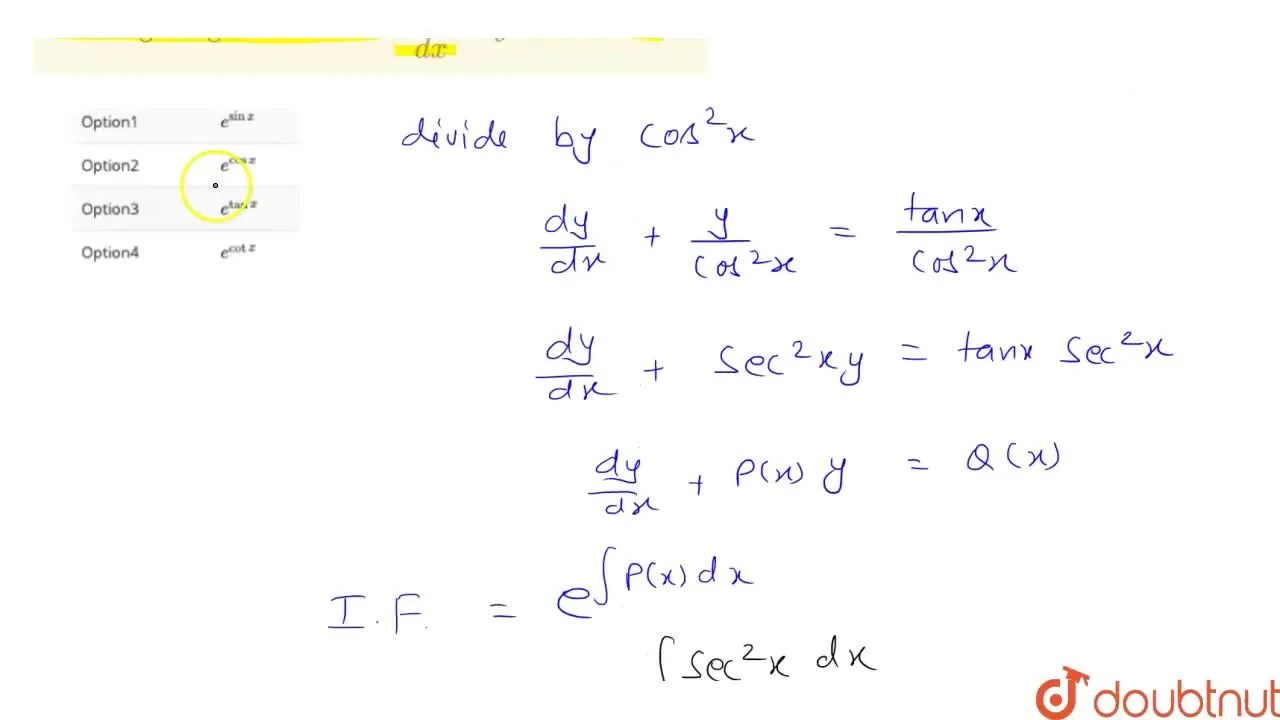 dx
Option1 e^{sin x}
Option2 e^{cos x}
Option3 e^{tan x}
Option4 e^{cot x}
divide by cos²x
dy/dx + y/cos²x = tanx/cos²x
dy/dx + sec²x y = tanx sec²x
dy/dx + P(x) y = Q(x)
I.F. = e^{∫P(x) dx}
∫sec²x dx
doubtnut